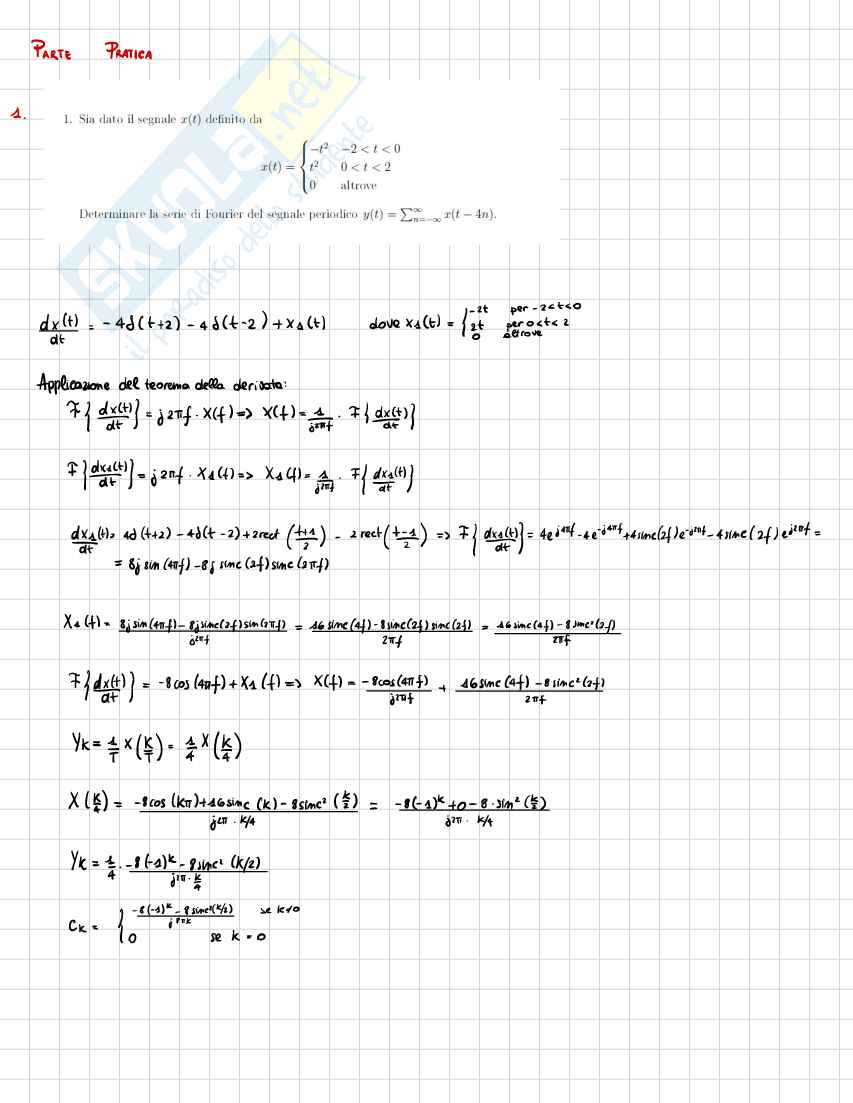 PARTE PRATICA
1.
1. Sia dato il segnale x(t) definito da
x(t) = { −t² −2 < t < 0
t² 0 < t < 2
0 altrove
Determinare la serie di Fourier del segnale periodico y(t) = ∑_{n=−∞}^{∞} x(t − 4n).
SKUOLA.net
il paradiso dello studente
dx(t)/dt = -4δ(t+2) - 4δ(t-2) + x₁(t) dove x₁(t) = { -2t per -2<t<0
2t per 0<t<2
0 altrove
Applicazione del teorema della derivata:
F{dx(t)/dt} = j2πf · X(f) => X(f) = 1/j2πf · F{dx(t)/dt}
F{dx₁(t)/dt} = j2πf · X₁(f) => X₁(f) = 1/j2πf · F{dx₁(t)/dt}
dx₁(t)/dt = 4δ(t+2) - 4δ(t-2) + 2rect((t+1)/2) - 2rect((t-1)/2) => F{dx₁(t)/dt} = 4e^{j4πf} - 4e^{-j4πf} + 4sinc(2f)e^{-j2πf} - 4sinc(2f)e^{j2πf} =
= 8j sin(4πf) - 8j sinc(2f) sinc(2πf)
X₁(f) = (8j sin(4πf) - 8j sinc(2f) sin(2πf))/j2πf = (16sinc(4f) - 8sinc(2f) sinc(2f))/2πf = (16sinc(4f) - 8sinc²(2f))/2πf
F{dx(t)/dt} = -8cos(4πf) + X₁(f) => X(f) = -8cos(4πf)/j2πf + (16sinc(4f) - 8sinc²(2f))/2πf
Yk = 1/T X(k/T) = 1/4 X(k/4)
X(k/4) = (-8cos(kπ) + 16sinc(k) - 8sinc²(k/2))/(j2π · k/4) = (-8(-1)^k + 0 - 8·sin²(k/2))/(j2π · k/4)
Yk = 1/4 · (-8(-1)^k - 8sinc²(k/2))/(j2π · k/4)
Ck = { (-8(-1)^k - 8sinc²(k/2))/(j8πk) se k≠0
0 se k = 0